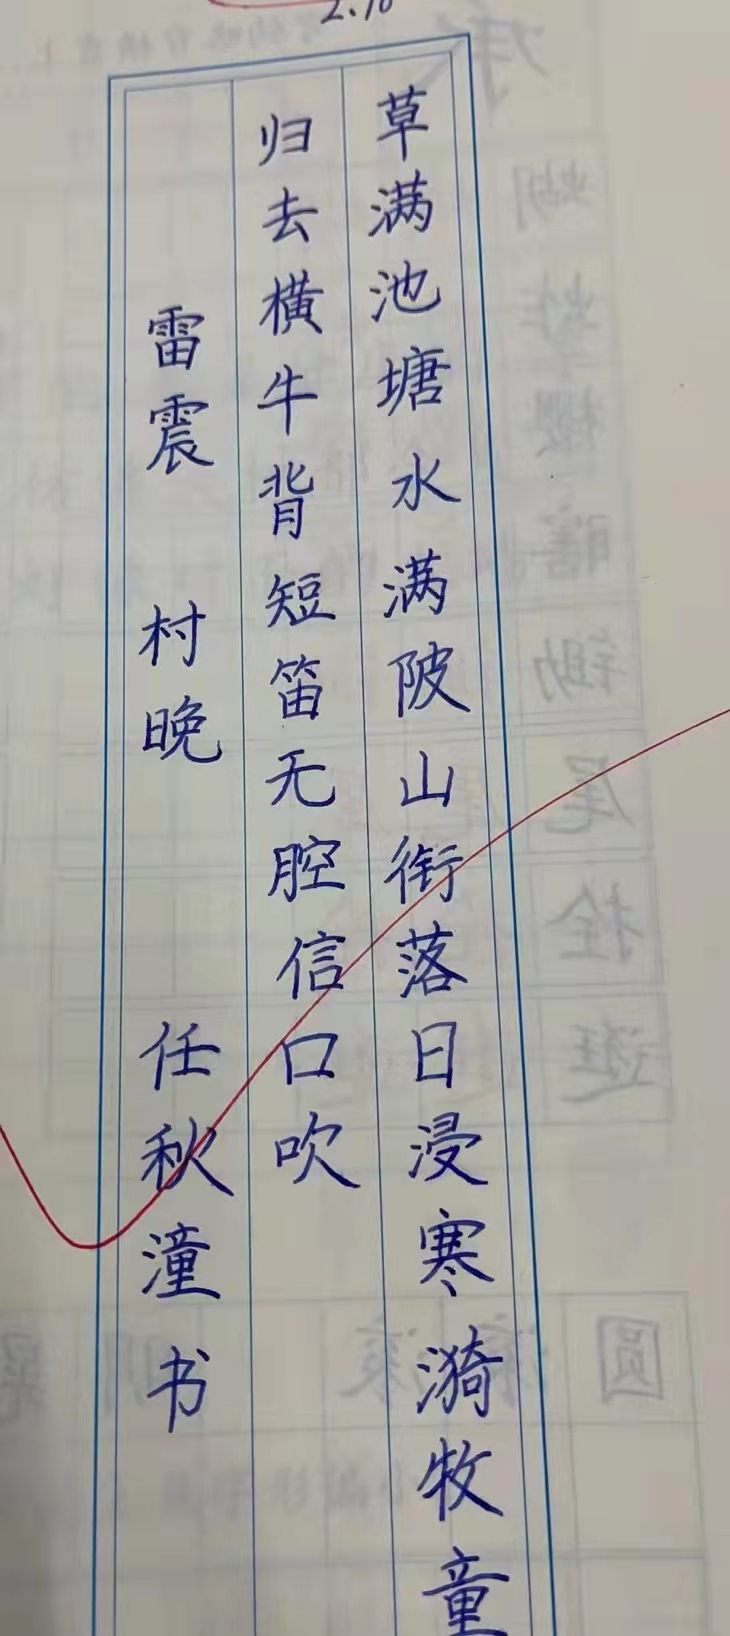 2.10
草满池塘水满陂山衔落日浸寒漪牧童
归去横牛背短笛无腔信口吹
雷震 村晚 任秋潼书